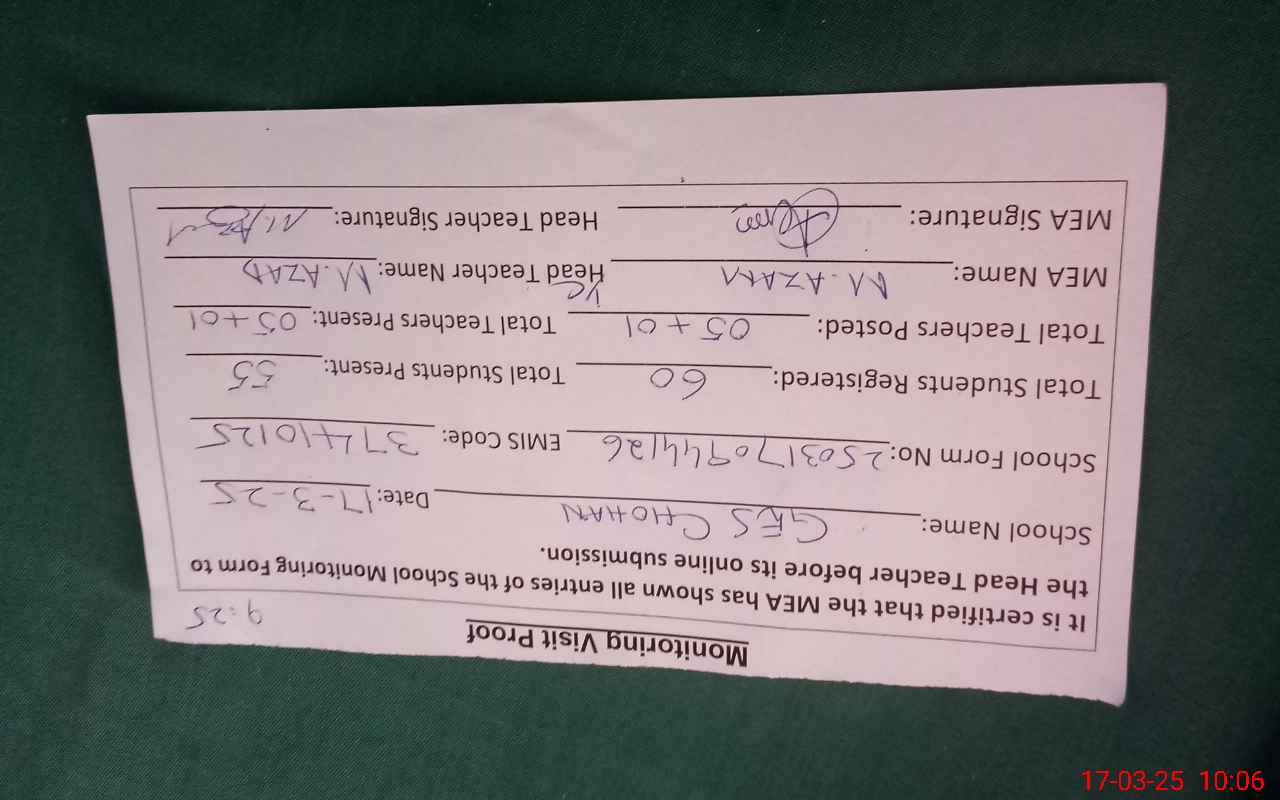 Monitoring Visit Proof
9:25
It is certified that the MEA has shown all entries of the School Monitoring Form to
the Head Teacher before its online submission.
School Name: GES CHOHAN Date: 17-3-25
School Form No: 2503170944126 EMIS Code: 37410125
Total Students Registered: 60 Total Students Present: 55
Total Teachers Posted: 05+01 Total Teachers Present: 05+01
MEA Name: M. AZAM Head Teacher Name: M. AZAD
MEA Signature: Head Teacher Signature: M. Azad
17-03-25 10:06